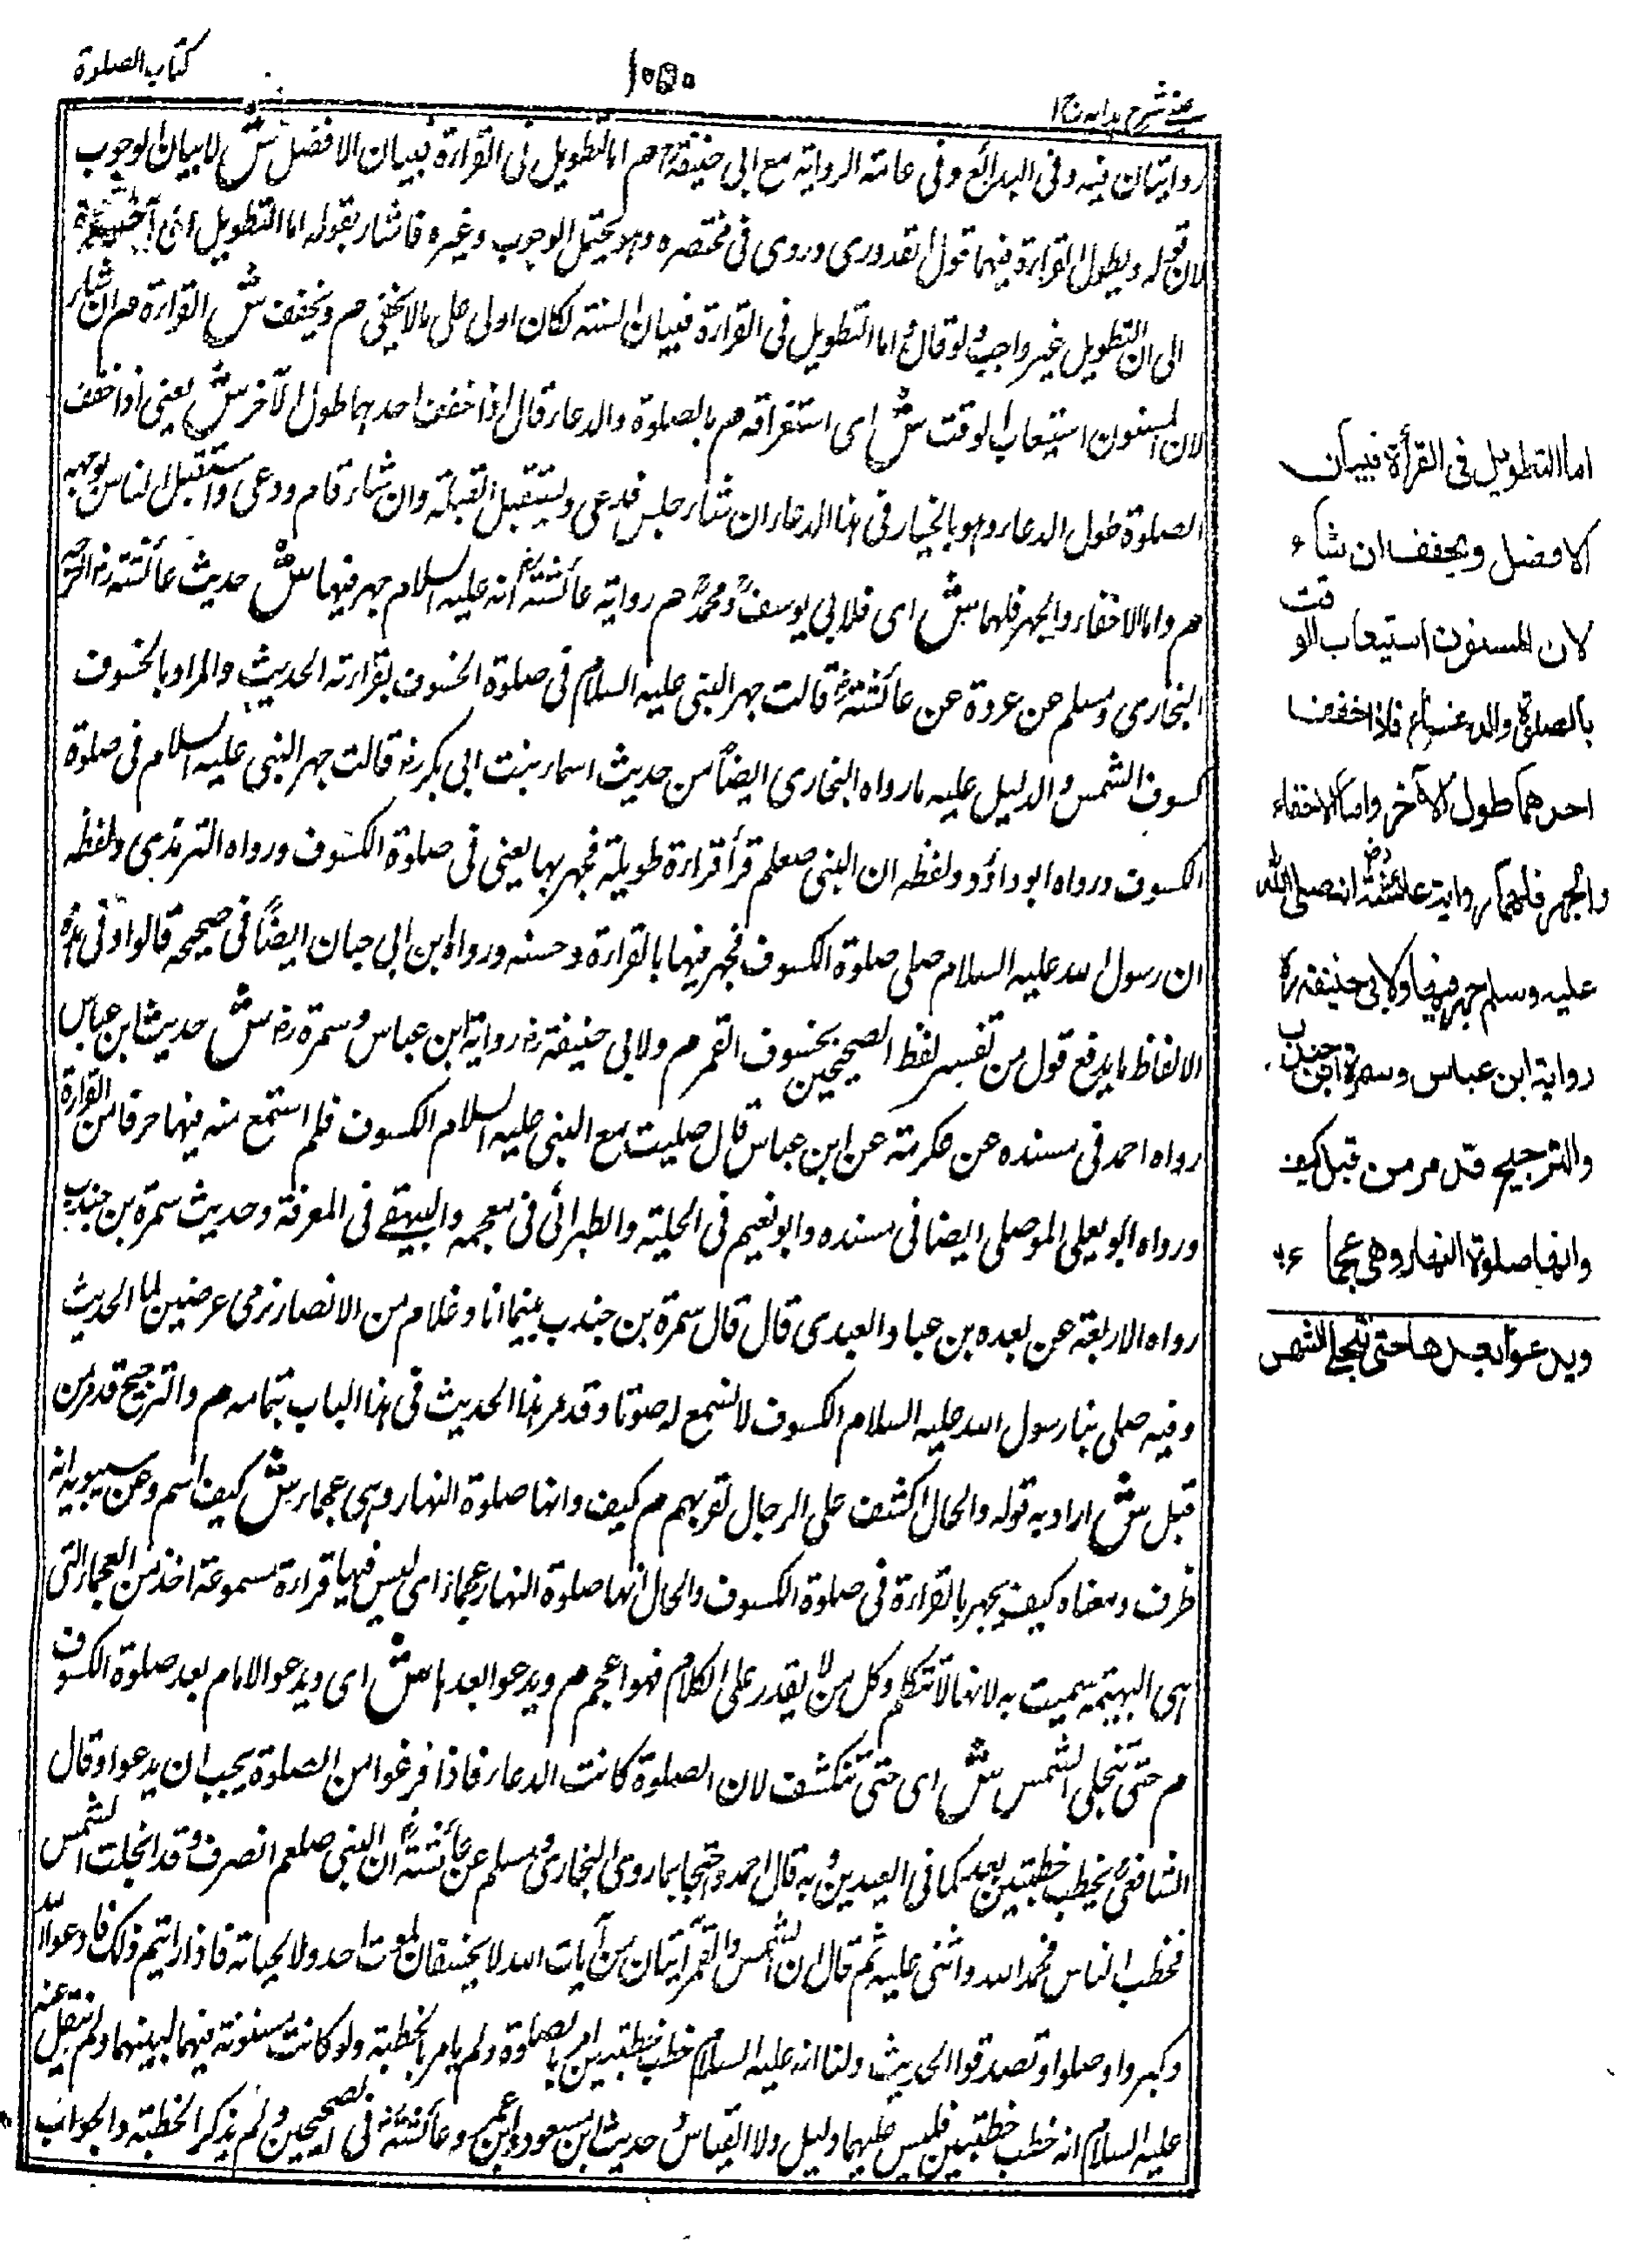 كتاب الصلوة
١٠٥٠
عينى شرح هدايه ج ١
روايتان فيه وفى البدائع وفى عامة الرواية مع ابى حنيفة رح م اما التطويل فى القراءة فبيان الافضل ش لا بيان الوجوب
لان قوله ويطول القراءة فيهما قول القدورى وروى فى مختصره وهو يحتمل الوجوب وغيره فاشار بقوله اما التطويل الى آخره
الى ان التطويل غير واجب ولو قال اما التطويل فى القراءة فبيان السنة لكان اولى على ما لا يخفى م ويخفف ش القراءة م ان شاء
لان المسنون استيعاب الوقت ش اى استغراقه م بالصلوة والدعاء قال اذا خفف احدهما طول الآخر ش يعنى اذا خفف
الصلوة طول الدعاء وهو بالخيار فى هذا الدعاء ان شاء جلس فدعى ويستقبل القبلة وان شاء قام ودعى واستقبل الناس بوجهه
م واما الاخفاء والجهر فلهما ش اى فلابى يوسف ومحمد م رواية عائشة رض انه عليه السلام جهر فيها ش حديث عائشة رض اخرجه
البخارى ومسلم عن عروة عن عائشة رض قالت جهر النبى عليه السلام فى صلوة الخسوف بقراءته الحديث والمراد بالخسوف
كسوف الشمس والدليل عليه ما رواه البخارى ايضاً من حديث اسماء بنت ابى بكر رض قالت جهر النبى عليه السلام فى صلوة
الكسوف ورواه ابو داؤد ولفظه ان النبى صلعم قرأ قراءة طويلة فجهر بها يعنى فى صلوة الكسوف ورواه الترمذى ولفظه
ان رسول الله عليه السلام صلى صلوة الكسوف فجهر فيها بالقراءة وحسنه ورواه ابن ابى حبان ايضاً فى صحيحه قالوا وفى هذه
الالفاظ ما يدفع قول من تفسير لفظ الصحيحين بخسوف القمر م ولابى حنيفة رض رواية ابن عباس وسمرة رض ش حديث ابن عباس
رواه احمد فى مسنده عن عكرمة عن ابن عباس قال صليت مع النبى عليه السلام الكسوف فلم استمع منه فيها حرفا من القراءة
ورواه ابو يعلى الموصلى ايضا فى مسنده وابو نعيم فى الحلية والطبرانى فى معجمه والبيهقے فى المعرفة وحديث سمرة بن جندب
رواه الاربعة عن بعده بن عباد العبدى قال قال سمرة بن جندب بينما انا وغلام من الانصار نرمى عرضين لنا الحديث
وفيه صلى بنا رسول الله عليه السلام الكسوف لا نسمع له صوتا وقد مر هذا الحديث فى هذا الباب بتمامه م والترجيح قد مر من
قبل ش اراد به قوله والحال اكشف على الرجال لقربهم م كيف وانها صلوة النهار وهى عجماء ش كيف اسم وعن سيبويه انه
ظرف ومعناه كيف يجهر بالقراءة فى صلوة الكسوف والحال انها صلوة النهار عجماء اى ليس فيها قراءة مسموعة اخذ من العجماء التى
هى البهيمة سميت به لانها لا تتكلم وكل من لا يقدر على الكلام فهو اعجم م ويدعو بعدها ش اى ويدعو الامام بعد صلوة الكسوف
م حتى تنجلى الشمس ش اى حتى تنكشف لان الصلوة كانت الدعاء فاذا فرغوا من الصلوة يجب ان يدعوا وقال
الشافعى يخطب خطبتين بعد كما فى العيدين وبه قال احمد واحتجا بما روى البخارى ومسلم عن عائشة ان النبى صلعم انصرف وقد انجلت الشمس
فخطب الناس فحمد الله واثنى عليه ثم قال ان الشمس والقمر آيتان من آيات الله لا يخسفان لموت احد ولا لحياته فاذا رايتم ذلك فادعوا الله
وكبروا وصلوا وتصدقوا الحديث ولنا انه عليه السلام خطب خطبتين امر بالصلوة ولم يامر بالخطبة ولو كانت مسنونة فيهما لبينهما ولم ينقل عنه
عليه السلام انه خطب خطبتين فليس عليهما دليل ولا القياس وحديث ابن مسعود وابن عمر وعائشة رض فى الصحيحين ولم يذكر الخطبة والجواب
اما التطويل فى القرأة فبيان
الافضل ويخفف ان شاء
لان المسنون استيعاب الوقت
بالصلوة والدعاء فاذا خفف
احدهما طول الآخر واما الاخفاء
والجهر فلهما رواية عائشة رض انه صلى الله
عليه وسلم جهر فيها ولابى حنيفة ره
رواية ابن عباس وسمرة ابن جندب
والترجيح قد مر من قبل كيف
وانها صلوة النهار وهى عجماء
ويدعوا بعدها حتى تنجلى الشمس